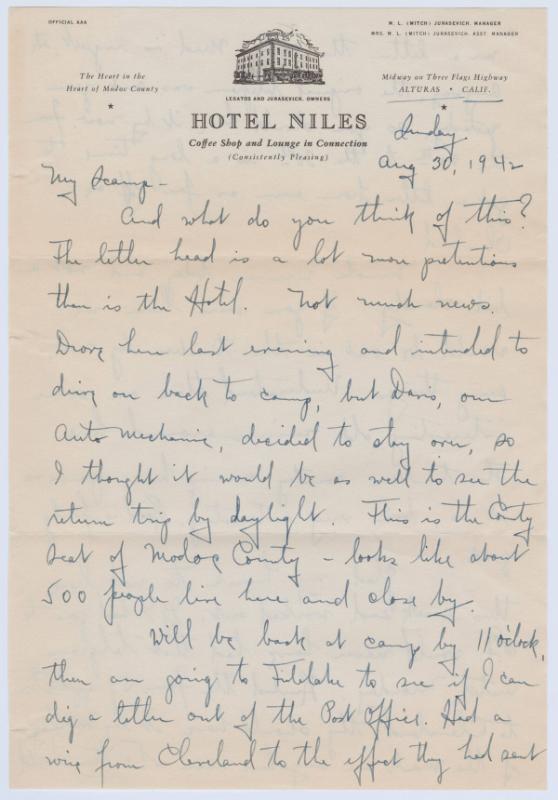 OFFICIAL AAA
M. L. (MITCH) JURASEVICH, MANAGER
MRS. M. L. (MITCH) JURASEVICH, ASST. MANAGER
The Heart in the
Heart of Modoc County
Midway on Three Flags Highway
ALTURAS • CALIF.
LEGATOS AND JURASEVICH, OWNERS
HOTEL NILES
Coffee Shop and Lounge in Connection
(Consistently Pleasing)
Sunday
Aug 30, 1942
My Scamp -
And what do you think of this?
The letter head is a lot more pretentious
than is the Hotel. Not much news.
Drove here last evening and intended to
drive on back to camp, but Davis, our
Auto Mechanic, decided to stay over, so
I thought it would be as well to see the
return trip by daylight. This is the County
seat of Modoc County - looks like about
500 people live here and close by.
Will be back at camp by 11 o'clock,
then am going to to see if I can
dig a letter out of the Post Office. Had a
wire from Cleveland to the effect they had sent